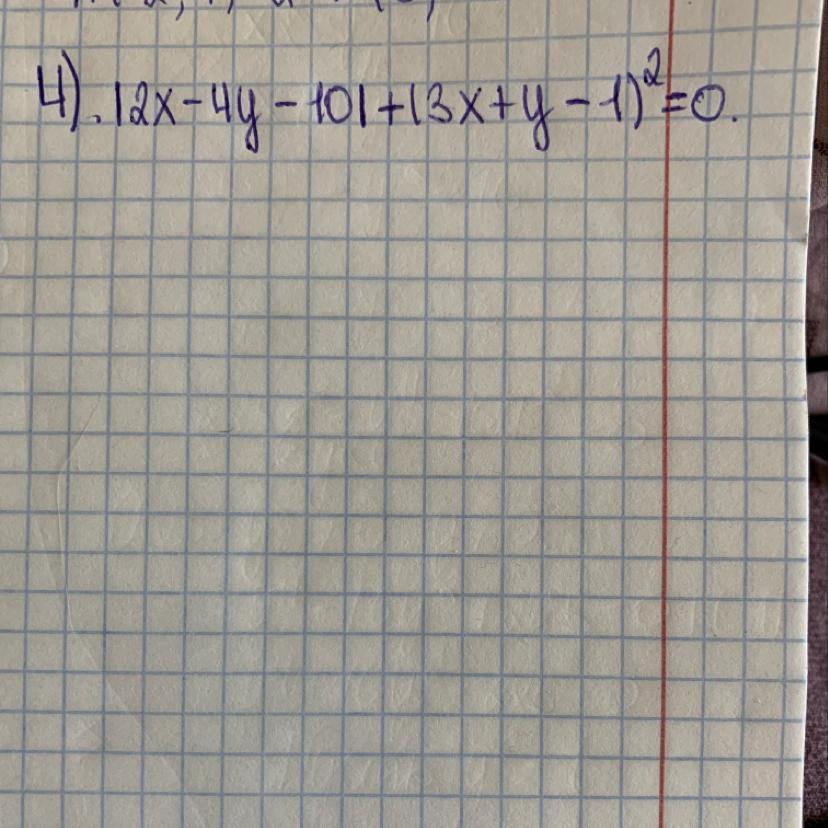 4). |2x-4y-10|+(3x+y-1)²=0.